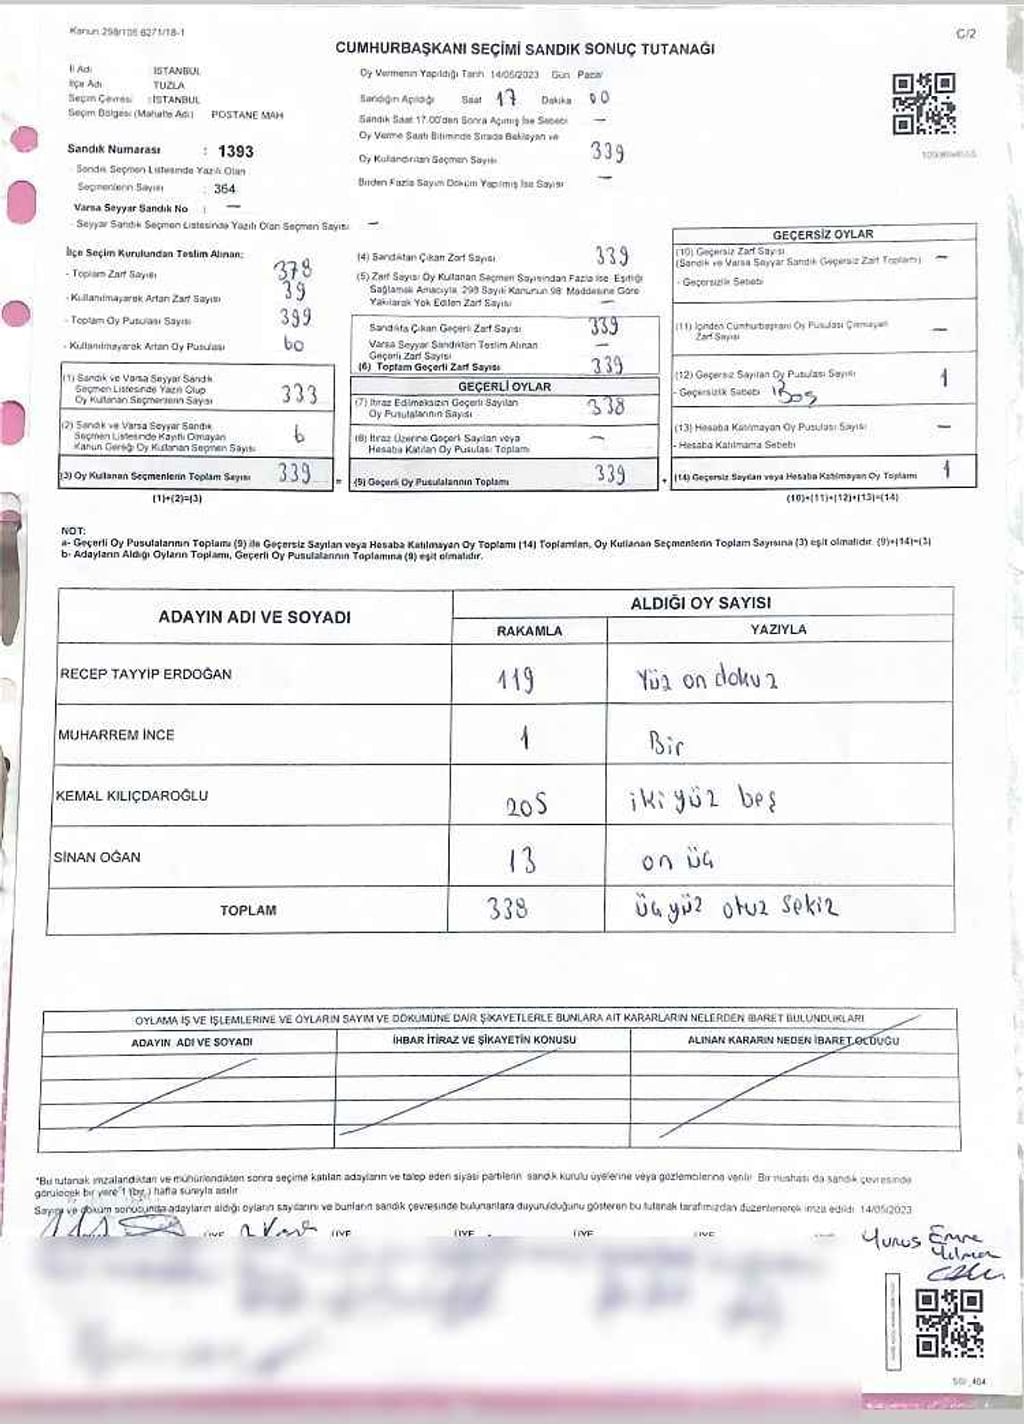 Kanun 298/105 6271/18-1
C/2
CUMHURBAŞKANI SEÇİMİ SANDIK SONUÇ TUTANAĞI
İl Adı İSTANBUL
İlçe Adı TUZLA
Seçim Çevresi : İSTANBUL
Seçim Bölgesi (Mahalle Adı) POSTANE MAH
Sandık Numarası : 1393
- Sandık Seçmen Listesinde Yazılı Olan
Seçmenlerin Sayısı : 364
Varsa Seyyar Sandık No : —
- Seyyar Sandık Seçmen Listesinde Yazılı Olan Seçmen Sayısı —
Oy Vermenin Yapıldığı Tarih 14/05/2023 Gün Pazar
Sandığın Açıldığı Saat 17 Dakika 00
Sandık Saat 17.00'den Sonra Açılmış İse Sebebi —
Oy Verme Saati Bitiminde Sırada Bekleyen ve
Oy Kullandırılan Seçmen Sayısı 339
Birden Fazla Sayım Döküm Yapılmış İse Sayısı —
İlçe Seçim Kurulundan Teslim Alınan:
- Toplam Zarf Sayısı 378
- Kullanılmayarak Artan Zarf Sayısı 39
- Toplam Oy Pusulası Sayısı 399
- Kullanılmayarak Artan Oy Pusulası 60
(1) Sandık ve Varsa Seyyar Sandık
Seçmen Listesinde Yazılı Olup
Oy Kullanan Seçmenlerin Sayısı 333
(2) Sandık ve Varsa Seyyar Sandık
Seçmen Listesinde Kayıtlı Olmayan
Kanun Gereği Oy Kullanan Seçmen Sayısı 6
(3) Oy Kullanan Seçmenlerin Toplam Sayısı 339 =
(1)+(2)=(3)
(4) Sandıktan Çıkan Zarf Sayısı 339
(5) Zarf Sayısı Oy Kullanan Seçmen Sayısından Fazla İse, Eşitliği
Sağlamak Amacıyla, 298 Sayılı Kanunun 98. Maddesine Göre
Yakılarak Yok Edilen Zarf Sayısı —
Sandıkta Çıkan Geçerli Zarf Sayısı 339
Varsa Seyyar Sandıktan Teslim Alınan
Geçerli Zarf Sayısı —
(6) Toplam Geçerli Zarf Sayısı 339
GEÇERLİ OYLAR
(7) İtiraz Edilmeksizin Geçerli Sayılan
Oy Pusulalarının Sayısı 338
(8) İtiraz Üzerine Geçerli Sayılan veya
Hesaba Katılan Oy Pusulası Toplamı —
(9) Geçerli Oy Pusulalarının Toplamı 339 +
GEÇERSİZ OYLAR
(10) Geçersiz Zarf Sayısı
(Sandık ve Varsa Seyyar Sandık Geçersiz Zarf Toplamı) —
- Geçersizlik Sebebi
(11) İçinden Cumhurbaşkanı Oy Pusulası Çıkmayan
Zarf Sayısı —
(12) Geçersiz Sayılan Oy Pusulası Sayısı 1
- Geçersizlik Sebebi Boş
(13) Hesaba Katılmayan Oy Pusulası Sayısı —
- Hesaba Katılmama Sebebi
(14) Geçersiz Sayılan veya Hesaba Katılmayan Oy Toplamı 1
(10)+(11)+(12)+(13)=(14)
NOT:
a- Geçerli Oy Pusulalarının Toplamı (9) ile Geçersiz Sayılan veya Hesaba Katılmayan Oy Toplamı (14) Toplamları, Oy Kullanan Seçmenlerin Toplam Sayısına (3) eşit olmalıdır. (9)+(14)=(3)
b- Adayların Aldığı Oyların Toplamı, Geçerli Oy Pusulalarının Toplamına (9) eşit olmalıdır.
ADAYIN ADI VE SOYADI ALDIĞI OY SAYISI
RAKAMLA YAZIYLA
RECEP TAYYİP ERDOĞAN 119 Yüz on dokuz
MUHARREM İNCE 1 Bir
KEMAL KILIÇDAROĞLU 205 iki yüz beş
SİNAN OĞAN 13 on üç
TOPLAM 338 üç yüz otuz sekiz
OYLAMA İŞ VE İŞLEMLERİNE VE OYLARIN SAYIM VE DÖKÜMÜNE DAİR ŞİKAYETLERLE BUNLARA AİT KARARLARIN NELERDEN İBARET BULUNDUKLARI
ADAYIN ADI VE SOYADI İHBAR İTİRAZ VE ŞİKAYETİN KONUSU ALINAN KARARIN NEDEN İBARET OLDUĞU
*Bu tutanak imzalandıktan ve mühürlendikten sonra seçime katılan adayların ve talep eden siyasi partilerin sandık kurulu üyelerine veya gözlemcilerine verilir. Bir nüshası da sandık çevresinde
görülecek bir yere 1 (bir) hafta süreyle asılır.
Sayım ve döküm sonucunda adayların aldığı oyların sayılarını ve bunların sandık çevresinde bulunanlara duyurulduğunu gösteren bu tutanak tarafımızdan düzenlenerek imza edildi. 14/05/2023
ÜYE ÜYE ÜYE ÜYE ÜYE
Yunus Emre
Yılmaz